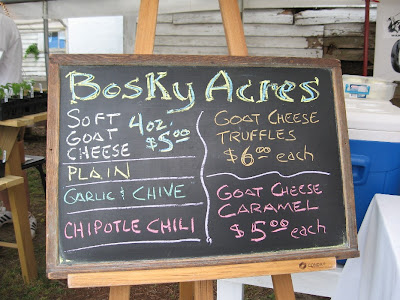 Bosky Acres
SOFT
GOAT
CHEESE
4oz.
$5.00
PLAIN
GARLIC & CHIVE
CHIPOTLE CHILI
GOAT CHEESE
TRUFFLES
$6.00 each
GOAT CHEESE
CARAMEL
$5.00 each